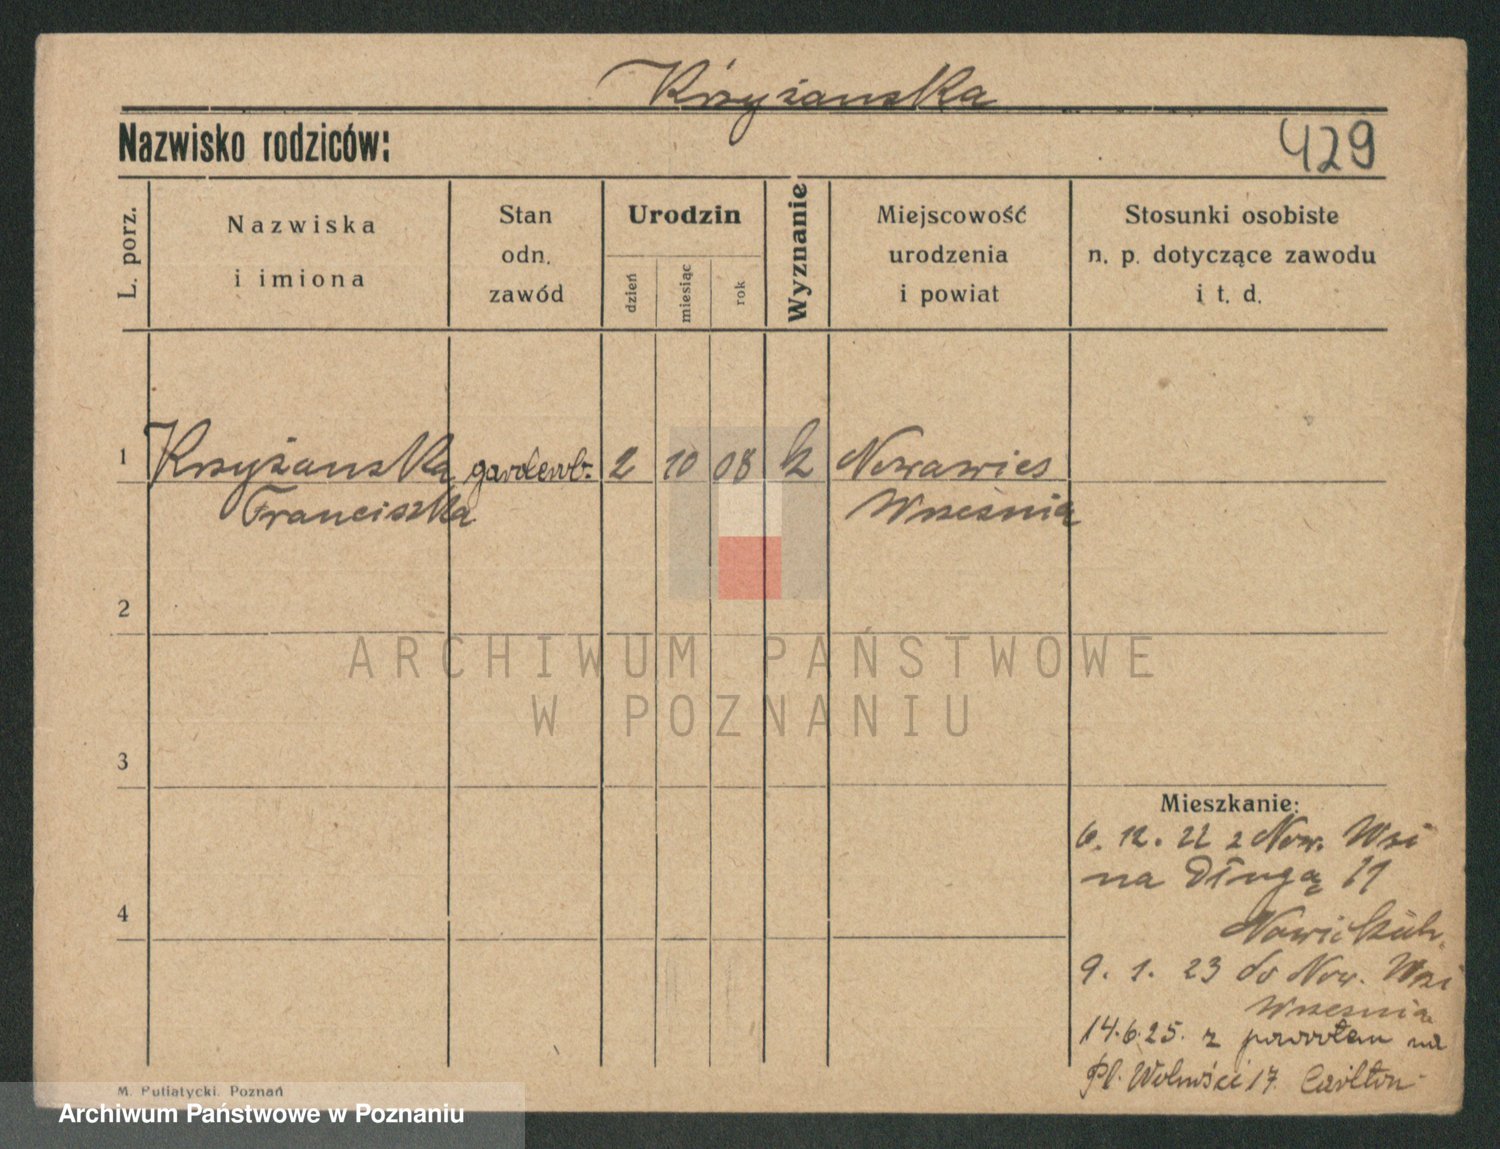 Krzyżanska
Nazwisko rodziców:
429
L. porz.
Nazwiska
i imiona
Stan
odn.
zawód
Urodzin
dzień
miesiąc
rok
Wyznanie
Miejscowość
urodzenia
i powiat
Stosunki osobiste
n. p. dotyczące zawodu
i t. d.
1 Krzyżanska garderob. 2 10 08 k Nowawies
Franciszka Wrzesnia
2
3
4
Mieszkanie:
6. 12. 22 z Now. Wsi
na Długą 11
9. 1. 23 do Now. Wsi
Wrzesnia
14.6.25. z powrotem na
Pl. Wolności 17 Carlton
ARCHIWUM PAŃSTWOWE
W POZNANIU
M. Putiatycki. Poznań
Archiwum Państwowe w Poznaniu